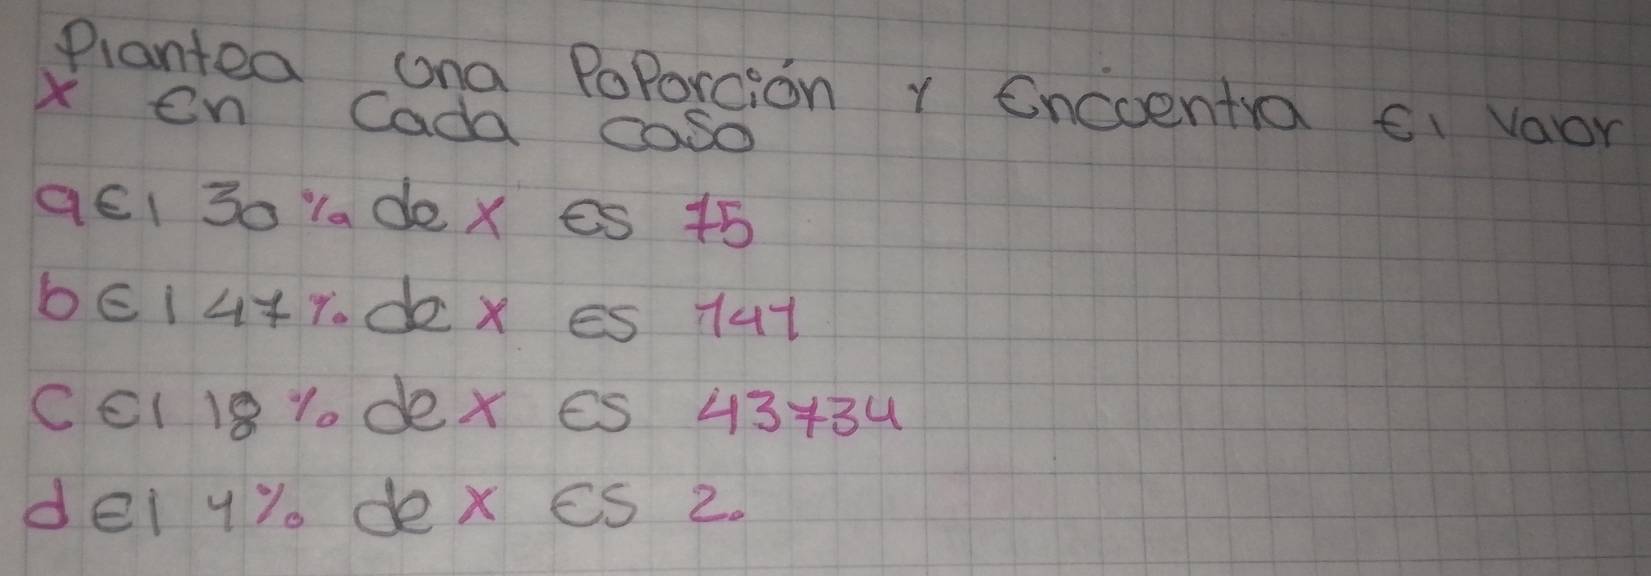 Plantea una Poporción y Encuentra El valor
x En Cada caso
a El 30% de x Es 75
b El 47% de x Es 141
c El 18% de x Es 43734
d El 4% de x Es 2.